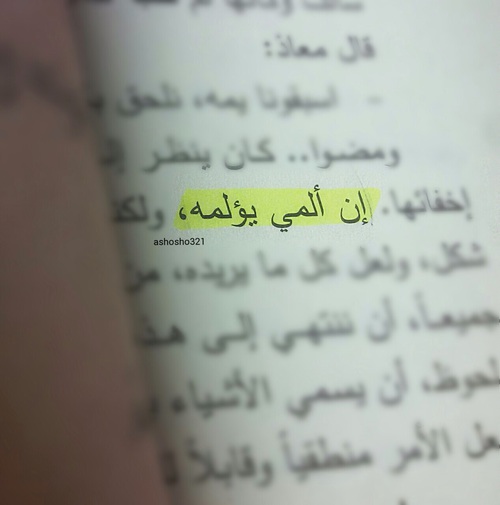 قال معاذ:
- اسبقونا يمه، نلحق
ومضوا.. كان ينظر
إخفائها. إن ألمي يؤلمه،
ashosho321
شكل، ولعل كل ما يريده، من
جميعاً، أن ننتهي إلى هذ
لحوظ، أن يسمي الأشياء
عل الأمر منطقياً وقابلاً